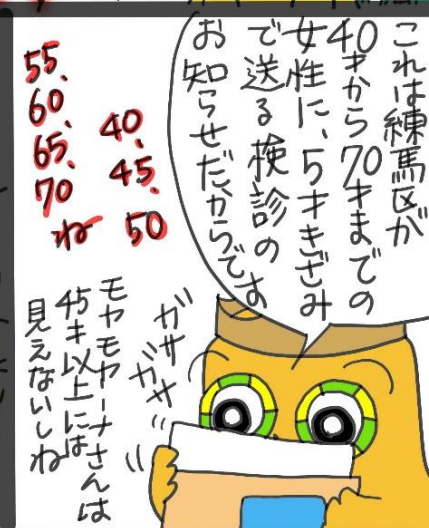 これは練馬区が
40才から70才までの
女性に、5才きざみ
で送る検診の
お知らせだからです
40、45、50
55、60、65、70ね
ガサガサ
モヤモヤーナさんは
45才以上には
見えないしね